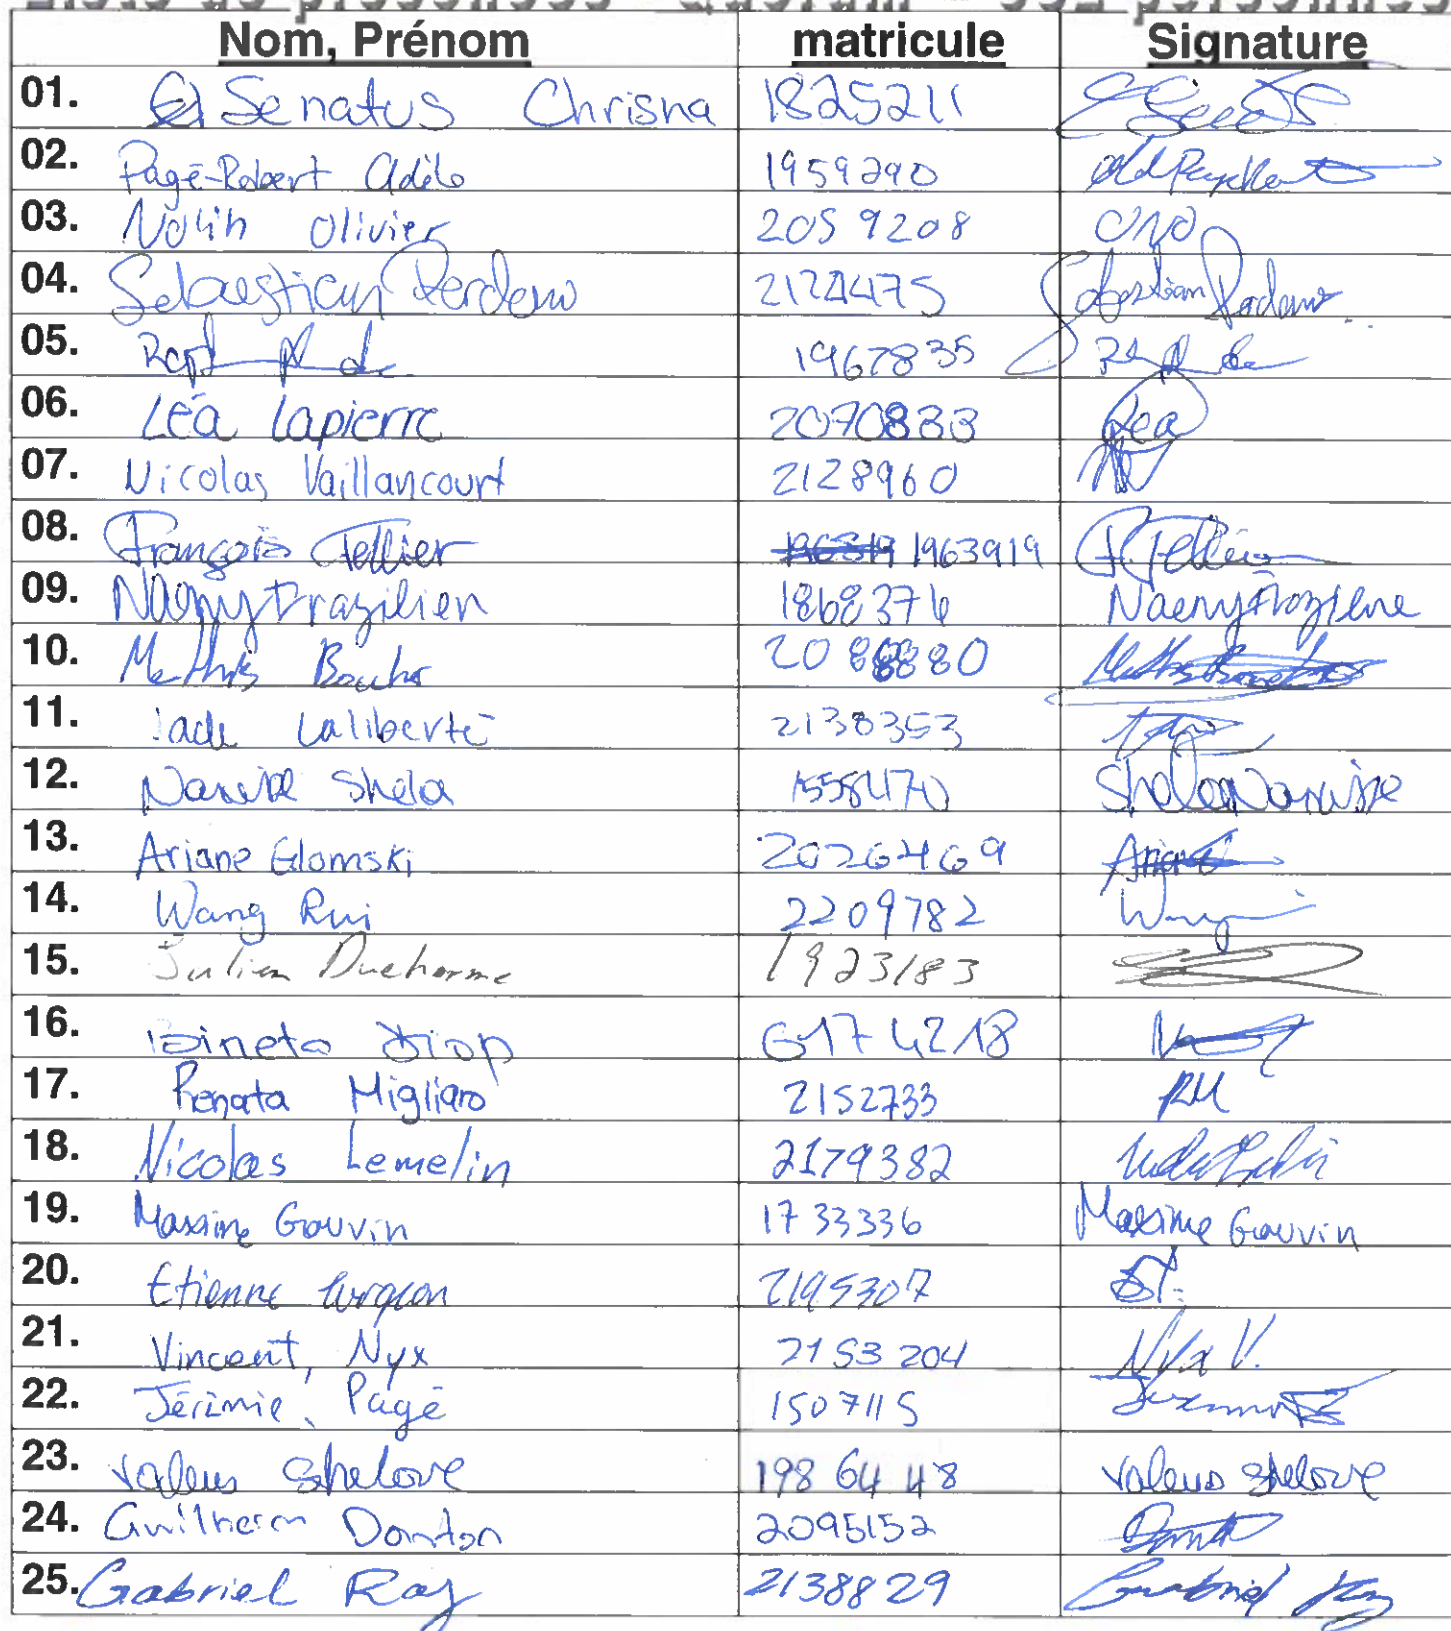 Liste de présences - Quorum - 352 personnes
Nom, Prénom matricule Signature
01. Senatus Chrisna 1825211
02. Pagé-Robert Adèle 1959290
03. Nolin Olivier 2059208
04. Sebastian Perdomo 2124475 Sebastian Perdomo
05. 1967835
06. Léa Lapierre 2070833 Léa
07. Nicolas Vaillancourt 2128960
08. François Tellier 1963919 F. Tellier
09. Naemy Frazilien 1868376 Naemy
10. Mathis Boucher
11. Jade Laliberté 2138353
12. Shela 1558470 Shela
13. Ariane Glomski 2026469 Ariane
14. Wang Rui 2209782
15. Julien Ducharme 1923183
16. Bineta Diop 6174218
17. Renata Migliaro 2152733 RM
18. Nicolas Lemelin 2179382
19. Maxime Gauvin 1733336 Maxime Gauvin
20. Etienne Turgeon 2195307
21. Vincent, Nyx 2153204 Nyx V.
22. Jérémie, Pagé 1507115
23. Valeus Shelove 1986448 Valeus Shelove
24. Danton 2095152
25. Gabriel Roy 2138829 Gabriel Roy